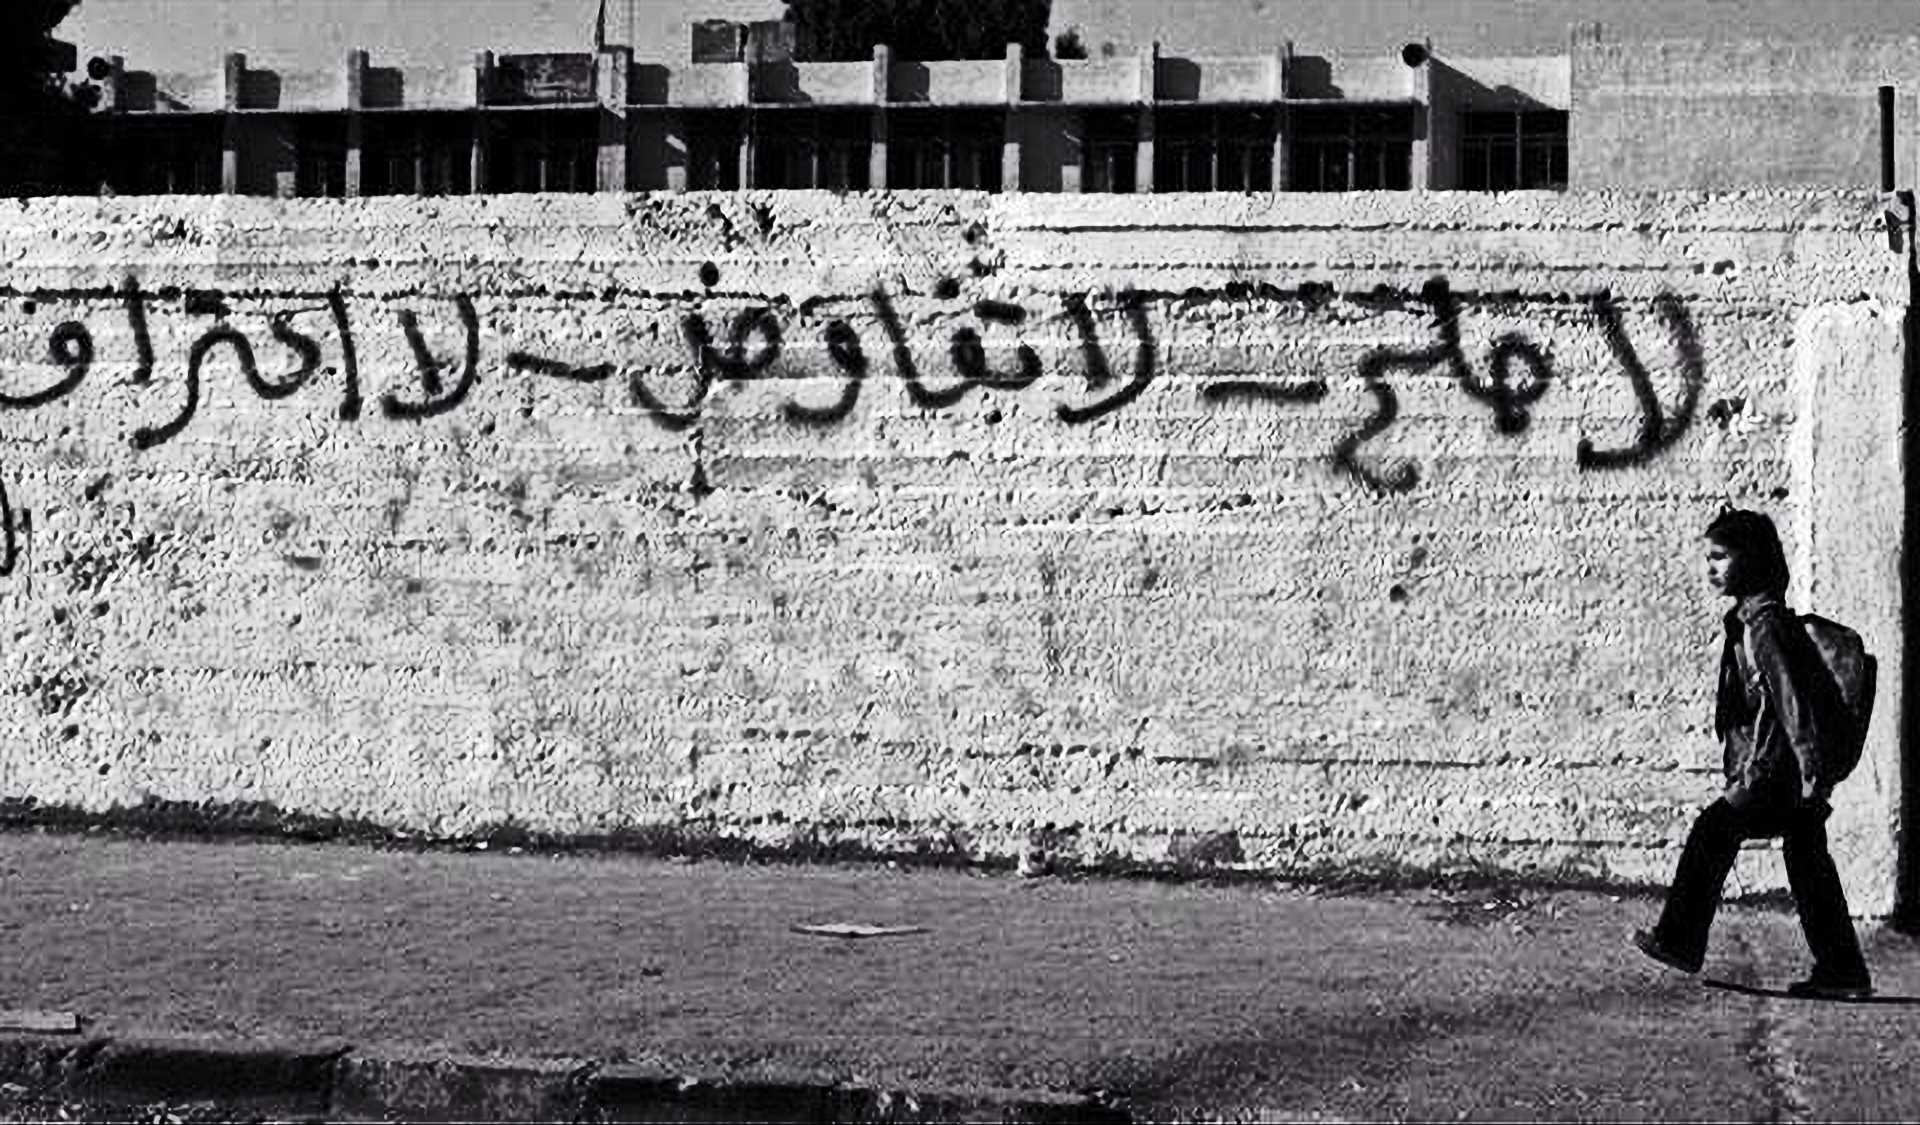 لا صلح – لا تفاوض – لا اعتراف